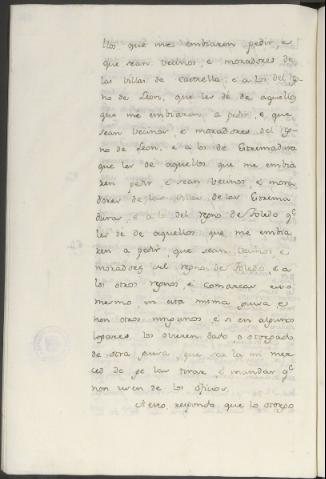 llos que me embiaren pedir, e
que sean vecinos, e moradores de
las villas de Castiella, e a los del rey
no de Leon, que les dé de aquello
que me embiaran a pedir, e que
sean vecinos, e moradores del rey
no de Leon, e a los de Estremadura
que les de aquellos que me embia
ren pedir e sean vecinos, e mora
dores de las villas de las Estrema
duras, e a los del regno de Toledo q.e
les de de aquellos que me embia
ren a pedir, que sean vecinos, e
moradores del regno de Toledo, e a
los otros regnos, e comarcas eso
mesmo en esta misma guisa e
non otros ningunos, e si en algunos
logares los oviere dado, o otorgado
de otra guisa, que sea la mi mer
ced de ge las tirar, e mandar q.e
non usen de los oficios.
A esto respondo que lo otorgo